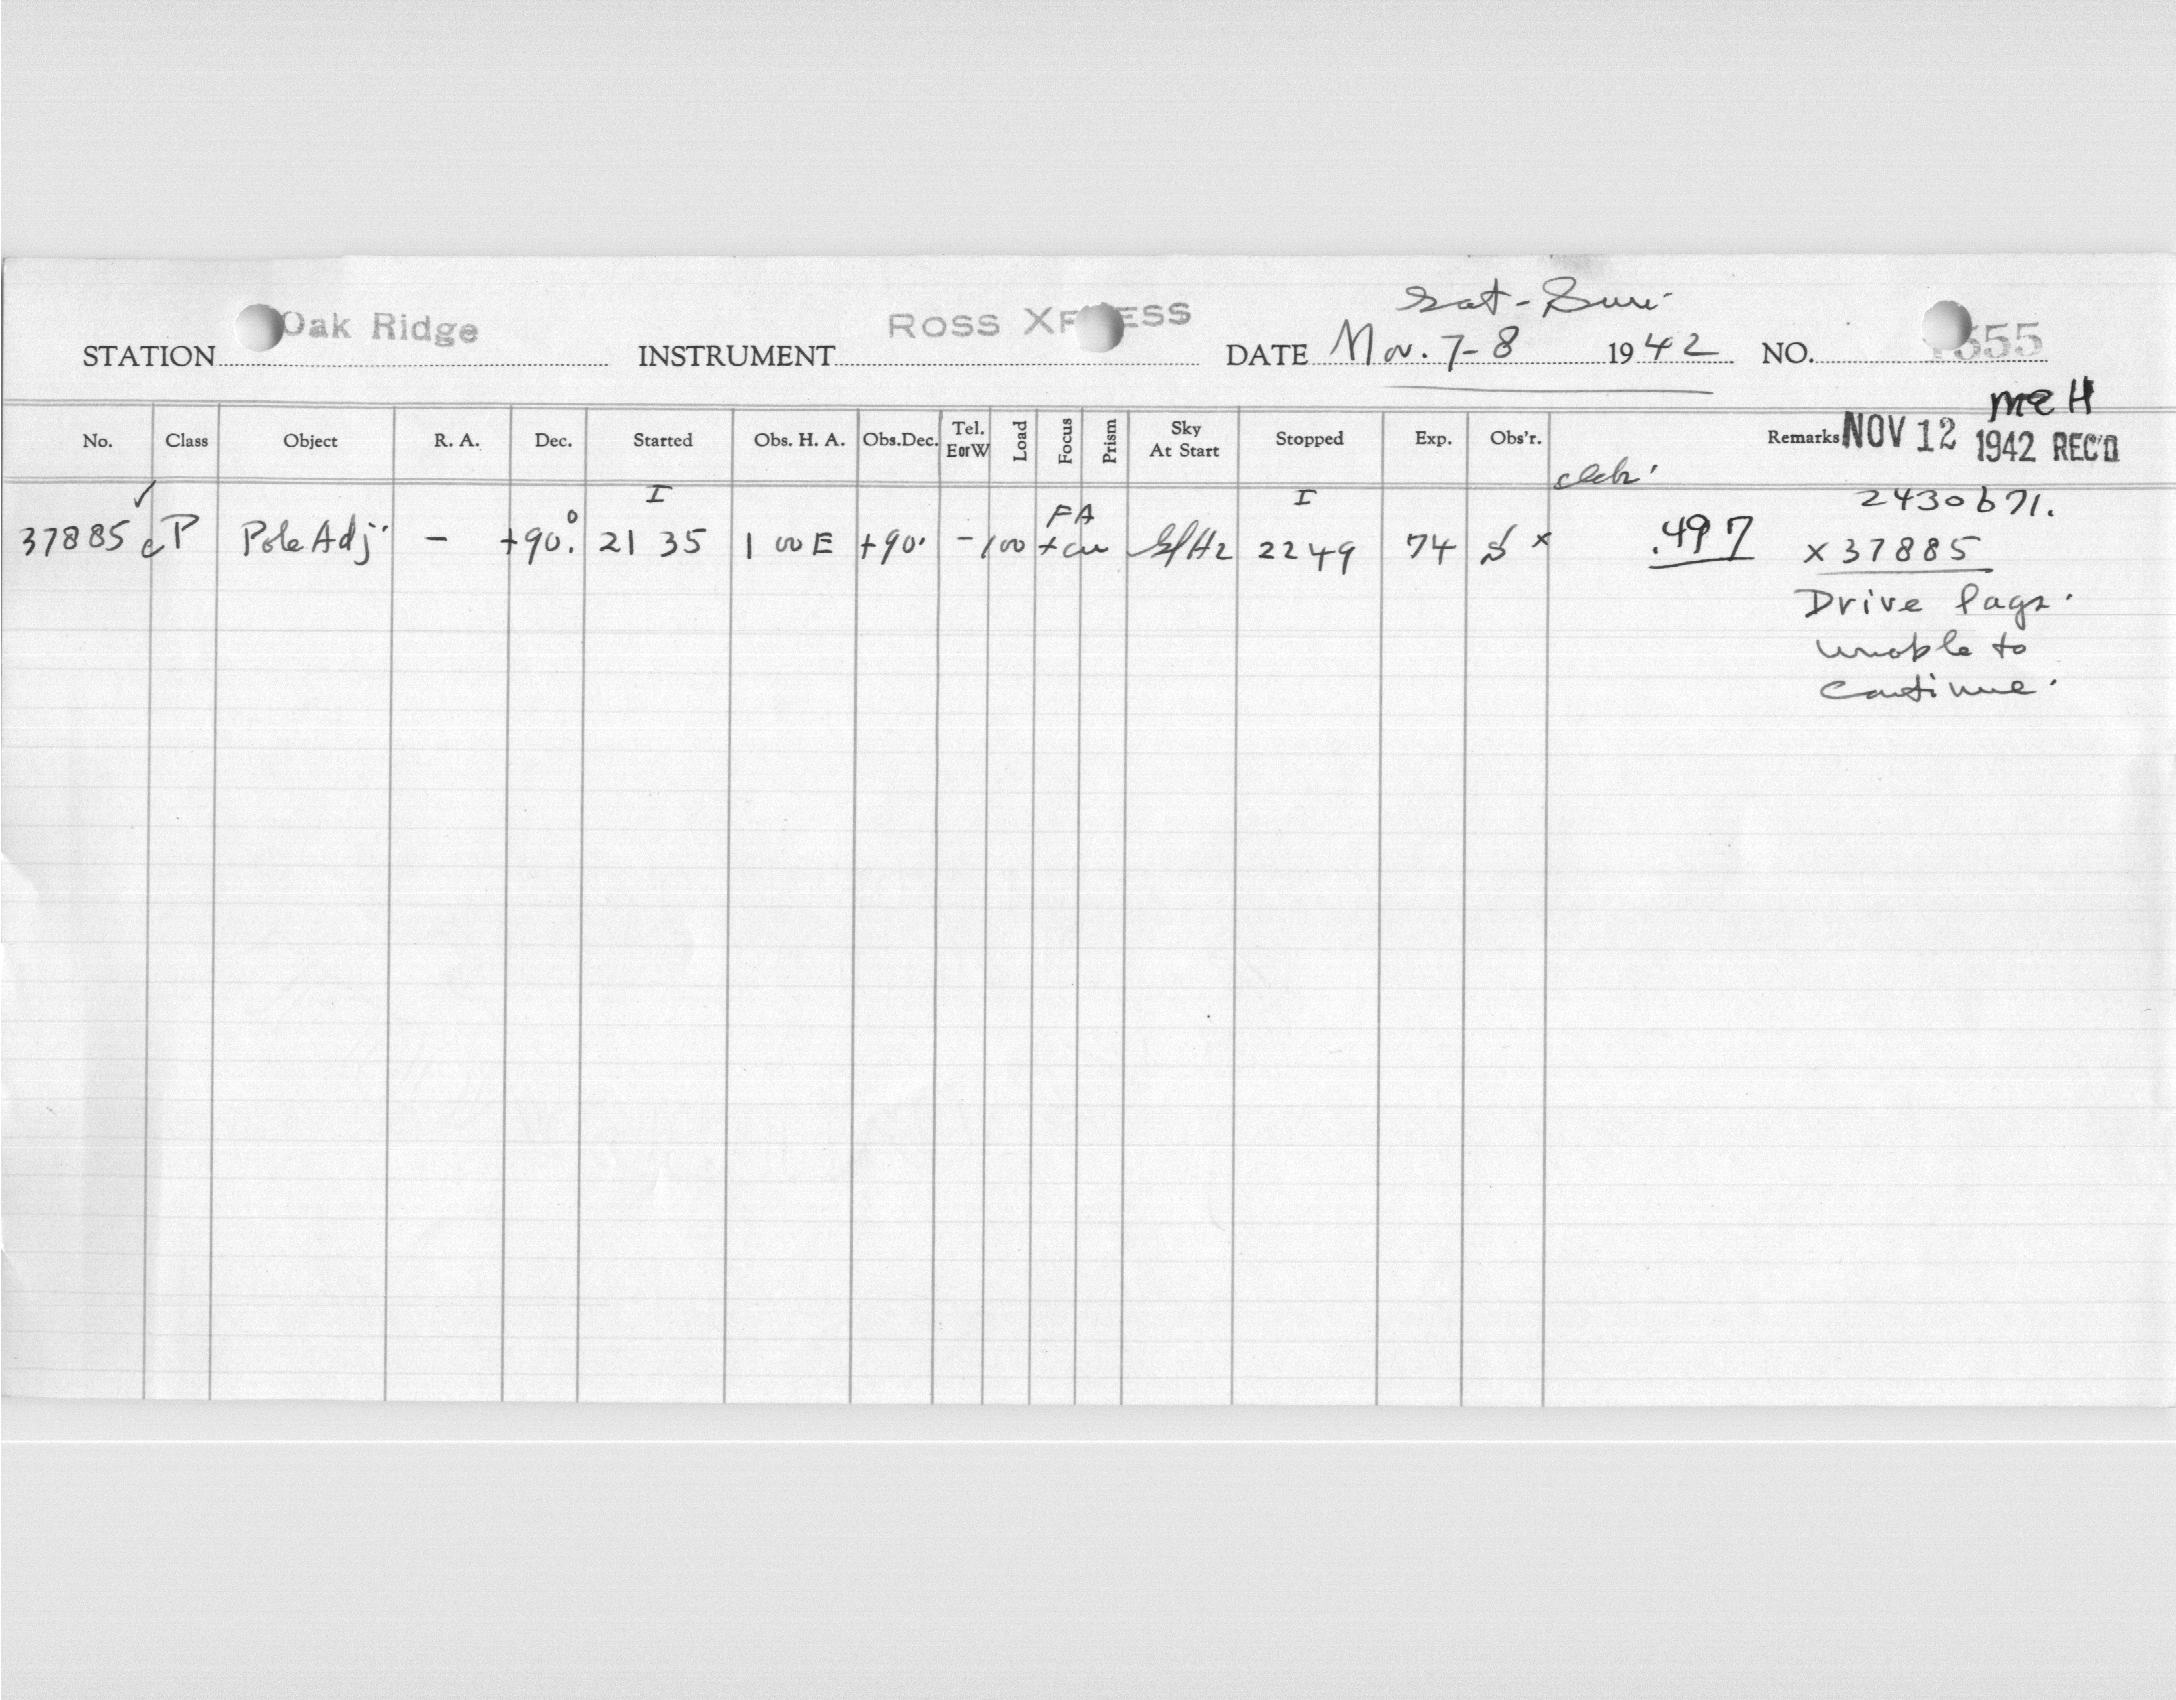 Sat - Sun.
STATION Oak Ridge INSTRUMENT ROSS XPRESS DATE Nov. 7-8 1942 NO. 555
meH
No. Class Object R. A. Dec. Started Obs. H. A. Obs.Dec. Tel. E or W Load Focus Prism Sky At Start Stopped Exp. Obs'r. Remarks NOV 12 1942 REC'D
I FA I 2430671.
37885 c P Pole Adj. - +90.° 21 35 1 00 E +90. -100 2249 74 x .497 x 37885
Drive lags.
unable to
continue.